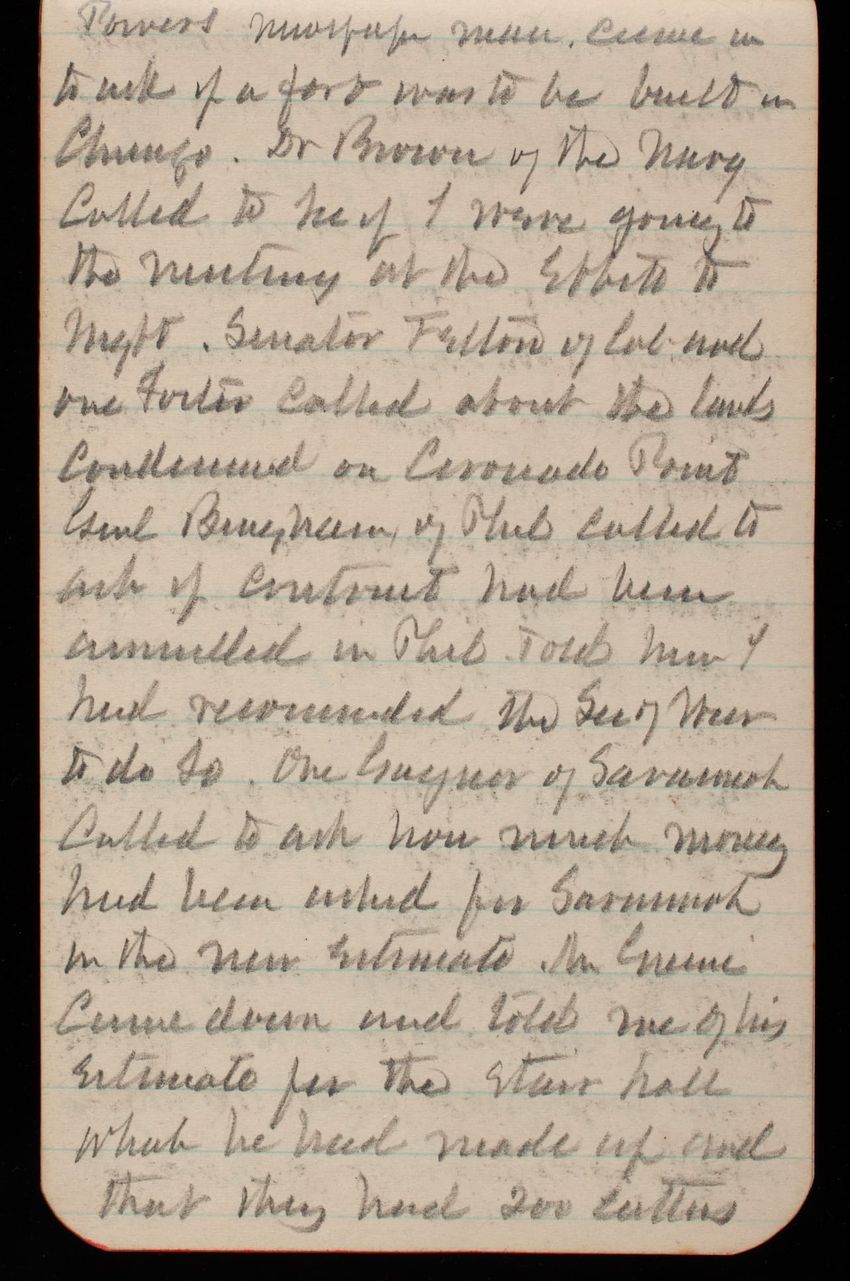 Powers newspaper man. came in
to ask if a fort was to be built in
Chicago. Dr Brown of the Navy
Called to see if I were going to
the meeting at the Ebbitt to
night. Senator Felton of Cal and
one Foster called about the lands
Condemned on Coronado Point
Genl Bingham, of Phil called to
ask if contract had been
annulled in Phil. Told him I
had recommended the Sec of War
to do so. One Gaynor of Savannah
Called to ask how much money
had been asked for Savannah
in the new Estimate. Mr Greene
Came down and told me of his
Estimate for the Stair hall
what he had made up and
that they had 200 letters